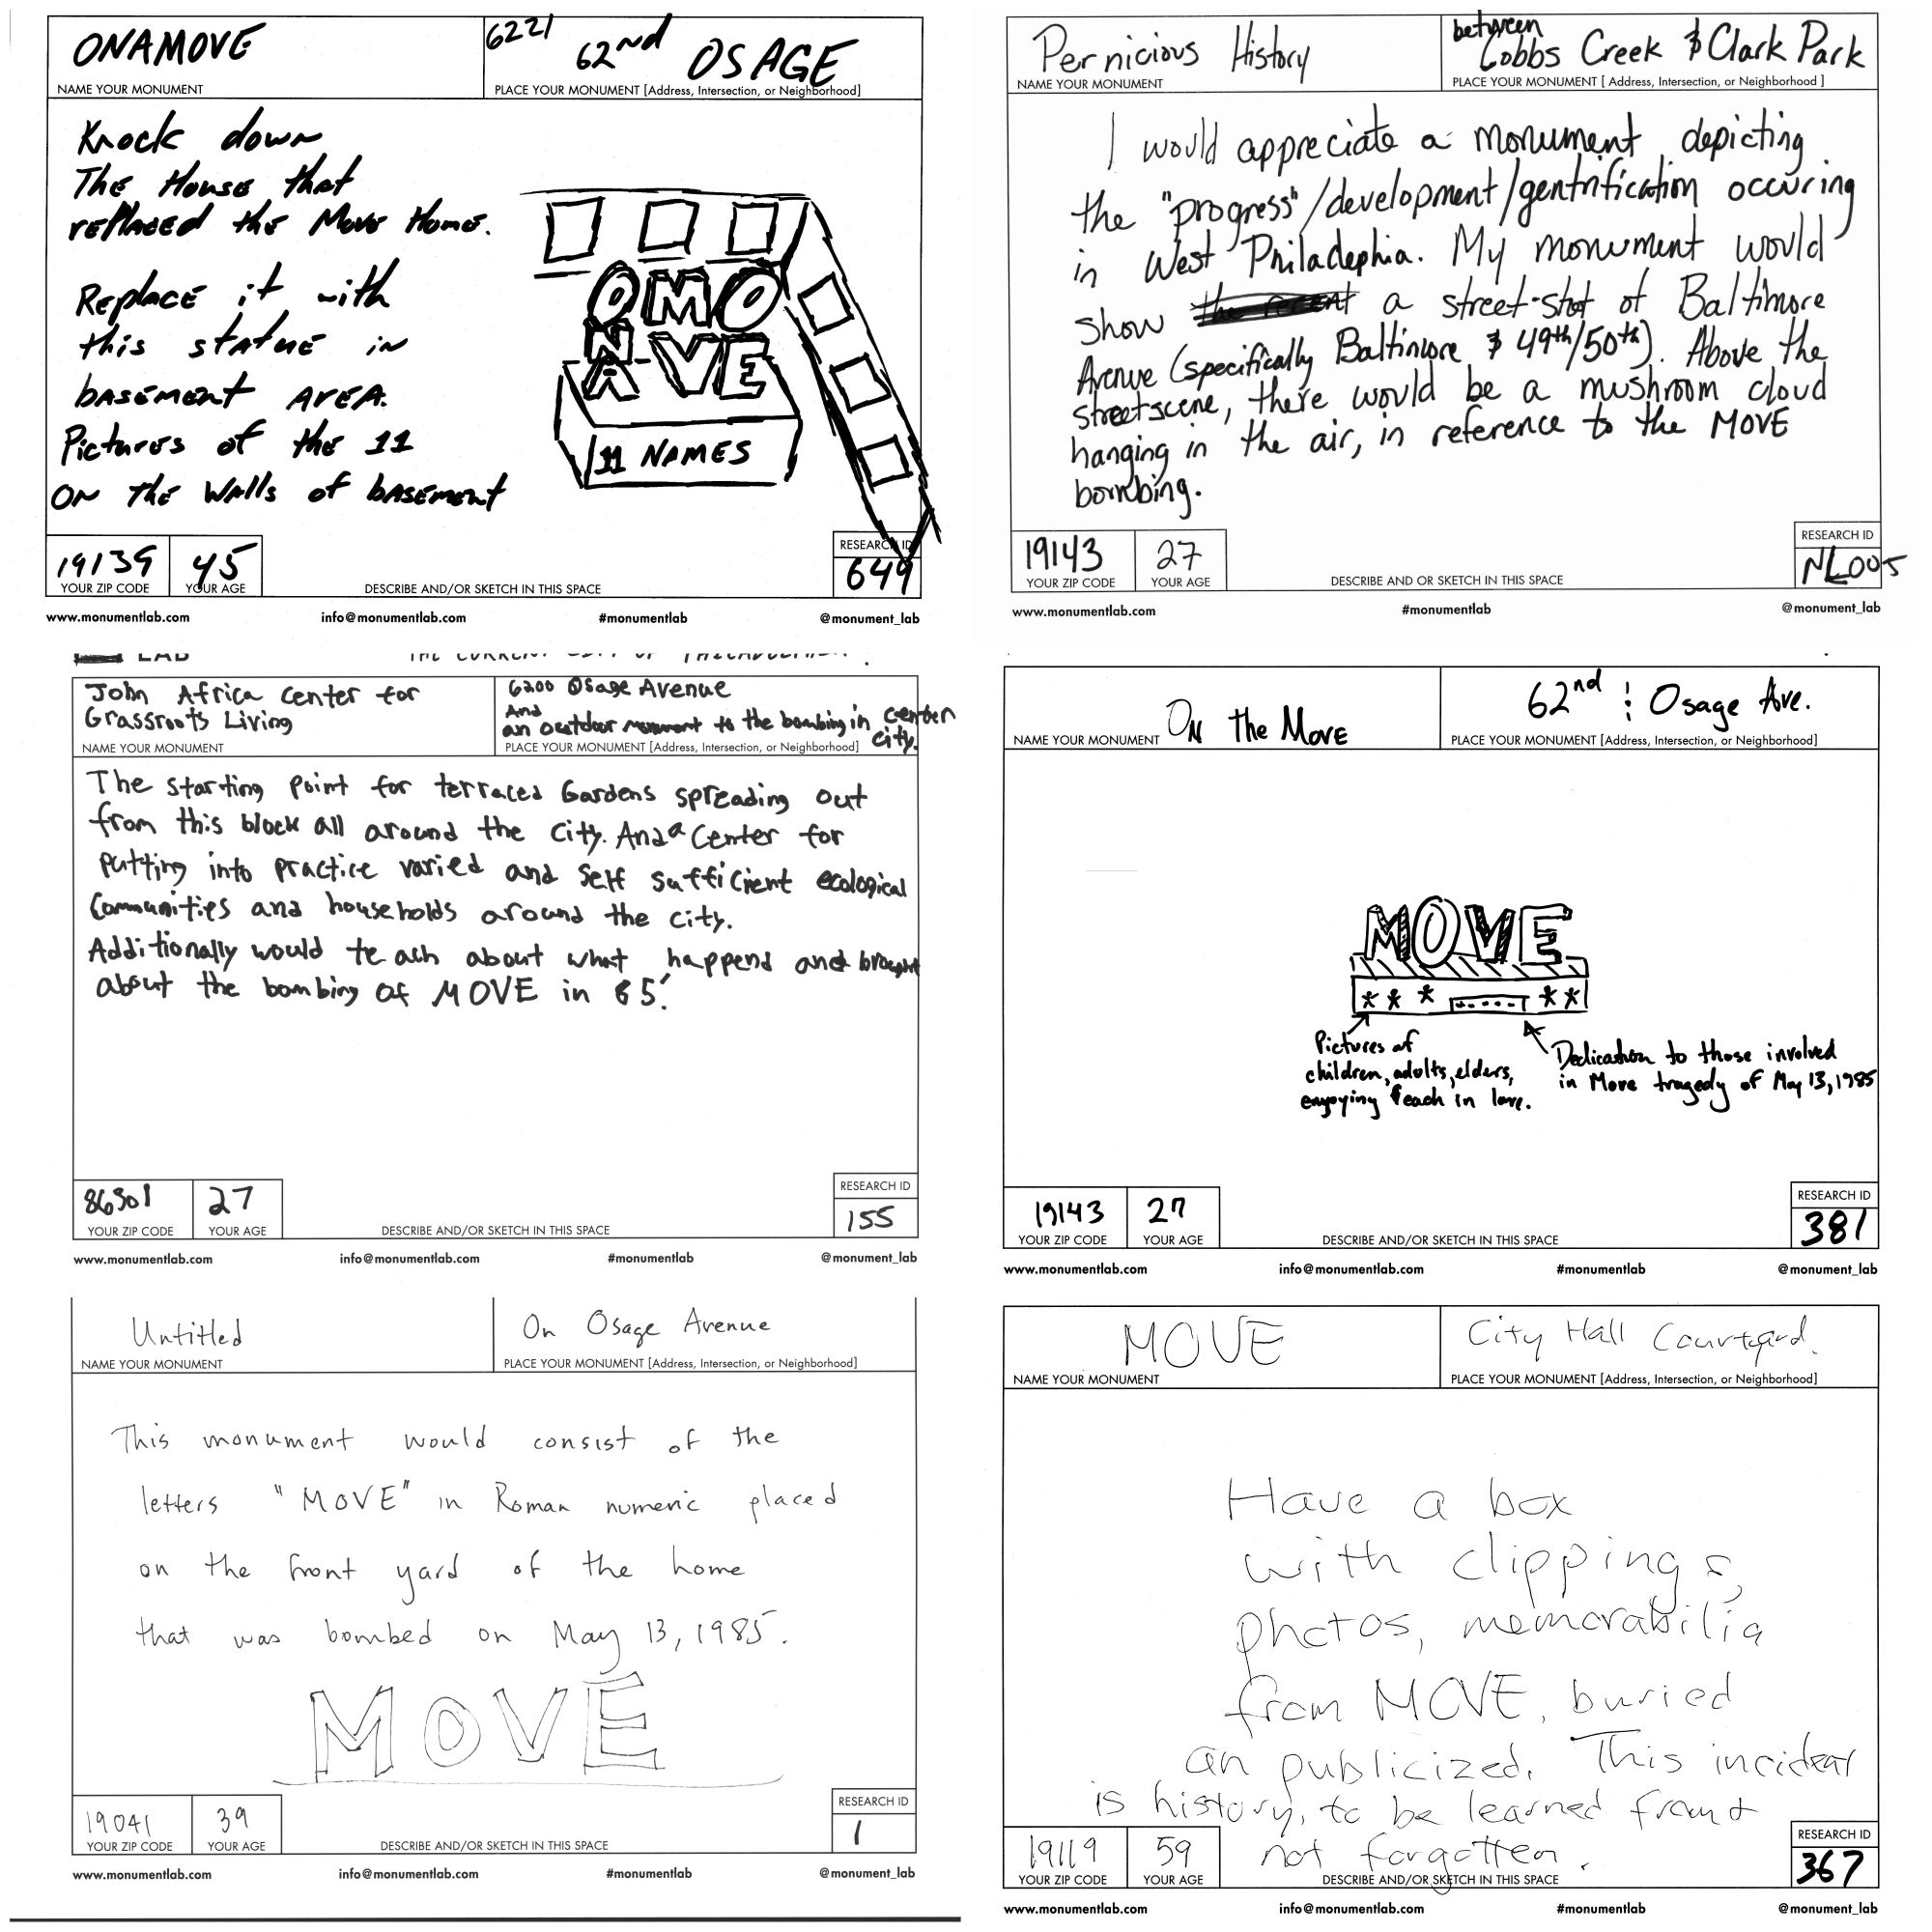 ONAMOVE
NAME YOUR MONUMENT
6221 62nd OSAGE
PLACE YOUR MONUMENT [Address, Intersection, or Neighborhood]
Knock down
The House that
replaced the Move Home.
Replace it with
this statue in
basement AREA.
Pictures of the 11
ON the Walls of basement
OMO
N
A VE
11 NAMES
19139
YOUR ZIP CODE
45
YOUR AGE
DESCRIBE AND/OR SKETCH IN THIS SPACE
RESEARCH ID
649
www.monumentlab.com info@monumentlab.com #monumentlab @monument_lab
Pernicious History
NAME YOUR MONUMENT
between
Cobbs Creek & Clark Park
PLACE YOUR MONUMENT [ Address, Intersection, or Neighborhood ]
I would appreciate a monument depicting
the "progress"/development/gentrification occuring
in West Philadephia. My monument would
show a street-shot of Baltimore
Avenue (specifically Baltimore & 49th/50th). Above the
streetscene, there would be a mushroom cloud
hanging in the air, in reference to the MOVE
bombing.
19143
YOUR ZIP CODE
27
YOUR AGE
DESCRIBE AND OR SKETCH IN THIS SPACE
RESEARCH ID
NL005
www.monumentlab.com #monumentlab @monument_lab
LAB THE CURRENT CITY OF PHILADELPHIA?
John Africa Center for
Grassroots Living
NAME YOUR MONUMENT
6200 Osage Avenue
And
an outdoor monument to the bombing in center
city.
PLACE YOUR MONUMENT [Address, Intersection, or Neighborhood]
The starting point for terraced Gardens spreading out
from this block all around the city. And a Center for
putting into practice varied and self sufficient ecological
Communities and households around the city.
Additionally would teach about what happend and brought
about the bombing of MOVE in 85'.
86301
YOUR ZIP CODE
27
YOUR AGE
DESCRIBE AND/OR SKETCH IN THIS SPACE
RESEARCH ID
155
www.monumentlab.com info@monumentlab.com #monumentlab @monument_lab
On the Move
NAME YOUR MONUMENT
62nd & Osage Ave.
PLACE YOUR MONUMENT [Address, Intersection, or Neighborhood]
MOVE
Pictures of
children, adults, elders,
enjoying each in love.
Dedication to those involved
in Move tragedy of May 13, 1985
19143
YOUR ZIP CODE
27
YOUR AGE
DESCRIBE AND/OR SKETCH IN THIS SPACE
RESEARCH ID
381
www.monumentlab.com info@monumentlab.com #monumentlab @monument_lab
Untitled
NAME YOUR MONUMENT
On Osage Avenue
PLACE YOUR MONUMENT [Address, Intersection, or Neighborhood]
This monument would consist of the
letters "MOVE" in Roman numeric placed
on the front yard of the home
that was bombed on May 13, 1985.
MOVE
19041
YOUR ZIP CODE
39
YOUR AGE
DESCRIBE AND/OR SKETCH IN THIS SPACE
RESEARCH ID
1
www.monumentlab.com info@monumentlab.com #monumentlab @monument_lab
MOVE
NAME YOUR MONUMENT
City Hall Courtyard.
PLACE YOUR MONUMENT [Address, Intersection, or Neighborhood]
Have a box
with clippings,
photos, memorabilia
from MOVE, buried
an publicized. This incident
is history, to be learned from &
not forgotten.
19119
YOUR ZIP CODE
59
YOUR AGE
DESCRIBE AND/OR SKETCH IN THIS SPACE
RESEARCH ID
367
www.monumentlab.com info@monumentlab.com #monumentlab @monument_lab